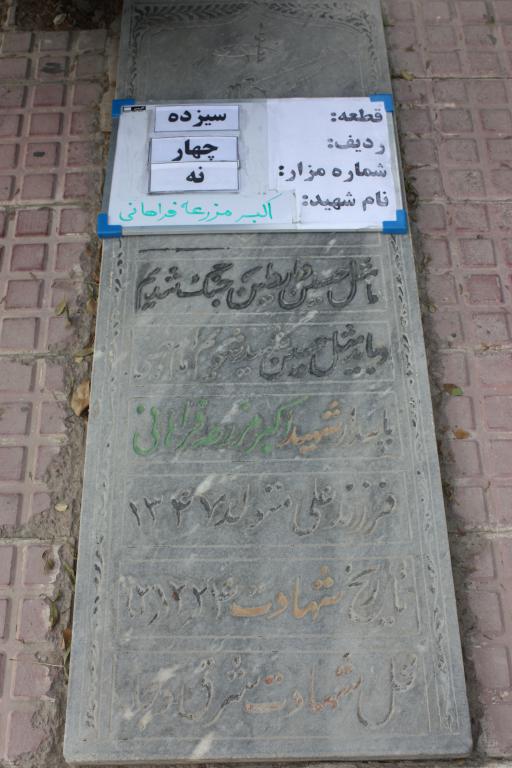 قطعه: سیزده
ردیف: چهار
شماره مزار: نه
نام شهید: اکبر مزرعه فراهانی
ما مثل حسین وارد این جنگ شدیم
و باید مثل حسین شهید شویم
پاسدار شهید اکبر مزرعه فراهانی
فرزند علی متولد ۱۳۴۷
تاریخ شهادت
محل شهادت شرق دجله